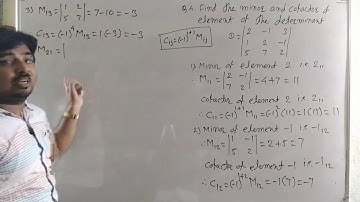 3) M₁₃ = |1 2| = 7-10 = -3
|5 7|
C₁₃ = (-1)⁴ M₁₃ = 1(-3) = -3
M₂₁ = |
Q.4 Find the minor and cofactor of
element of the determinant
D = |2 -1 3|
|1 2 -1|
|5 7 2|
Cᵢⱼ = (-1)ⁱ⁺ʲ Mᵢⱼ
1) Minor of element 2 i.e 2₁₁
∴ M₁₁ = |2 -1| = 4+7 = 11
|7 2|
Cofactor of element 2 i.e. 2₁₁
∴ C₁₁ = (-1)¹⁺¹ M₁₁ = (-1)²(11) = 1(11) = 11
2) Minor of element -1 is -1₁₂
M₁₂ = |1 -1| = 2+5 = 7
|5 2|
Cofactor of element -1 i.e. -1₁₂
∴ C₁₂ = (-1)¹⁺² M₁₂ = -1(7) = -7